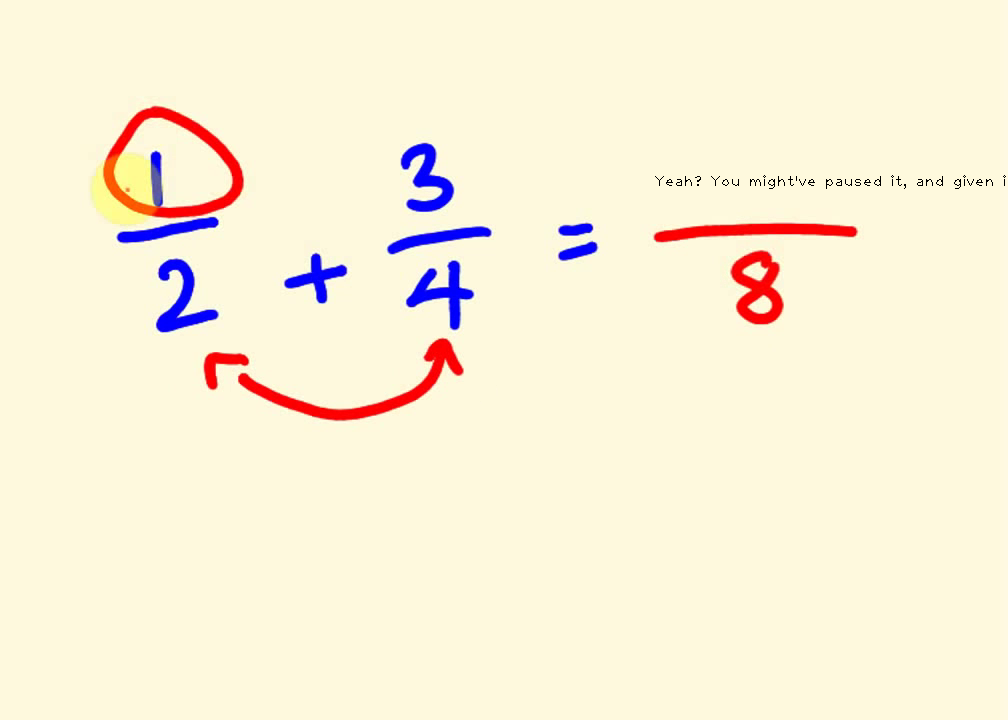 1/2 + 3/4 = /8
Yeah? You might've paused it, and given i